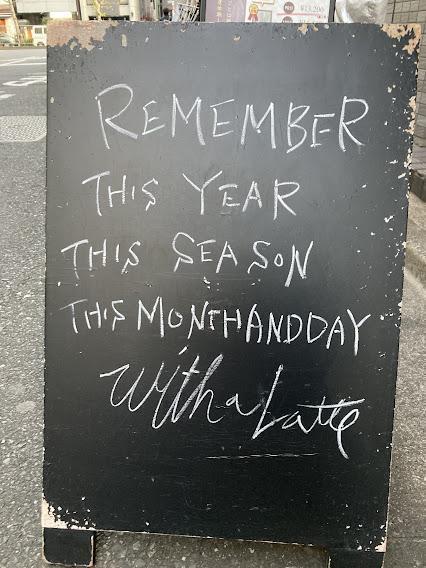 ¥13,200
REMEMBER
THIS YEAR
THIS SEASON
THIS MONTH AND DAY
with a Latte